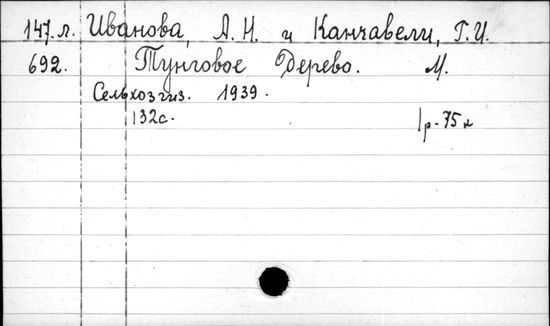 147.л. Иванова, А. Н. и Канчавели, Г. И.
692. Тунговое Дерево. М.
Сельхозгиз. 1939.
132с. 1р-75к